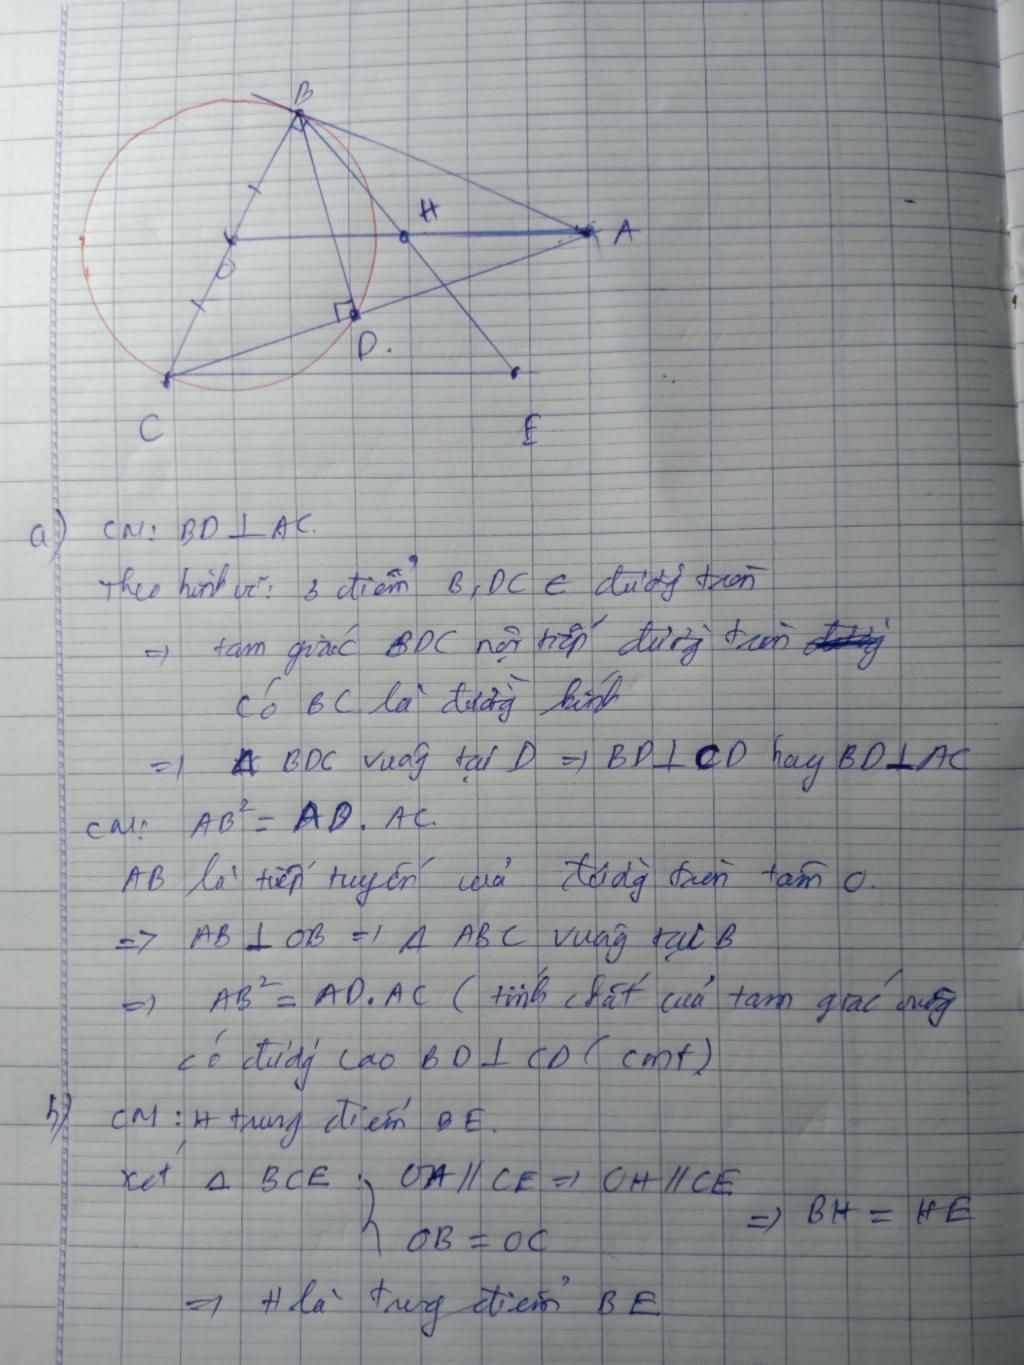 B
H
A
O
D.
C
E
a) CM: BD ⊥ AC.
Theo hình vẽ: 3 điểm B, DC ∈ đường tròn
=> tam giác BDC nội tiếp đường tròn
có BC là đường kính
=> Δ BDC vuông tại D => BD ⊥ CD hay BD ⊥ AC
CM: AB² = AD. AC.
AB là tiếp tuyến của đường tròn tâm O.
=> AB ⊥ OB => Δ ABC vuông tại B
=> AB² = AD. AC (tính chất của tam giác vuông
có đường cao BD ⊥ CD (cmt)
b) CM: H trung điểm BE.
Xét Δ BCE : OA // CE => OH // CE
=> BH = HE
OB = OC
=> H là trung điểm BE